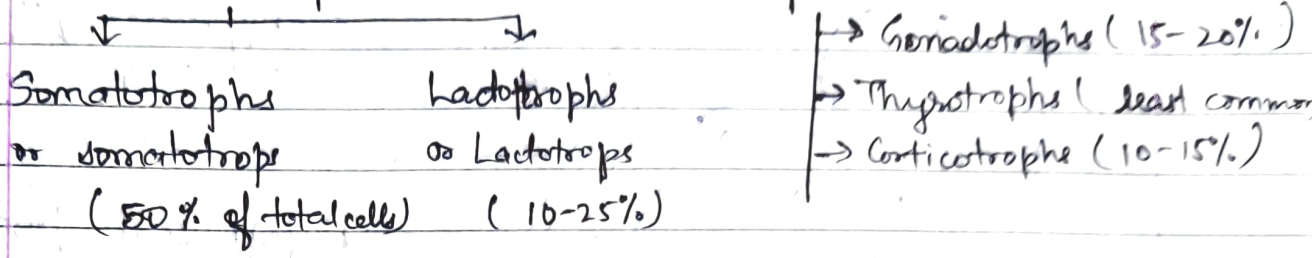 Somatotrophs
or somatotrops
(50% of total cells)
Lactotrophs
or Lactotrops
(10-25%)
→ Gonadotrophs (15-20%)
→ Thyrotrophs (least common
→ Corticotrophs (10-15%)